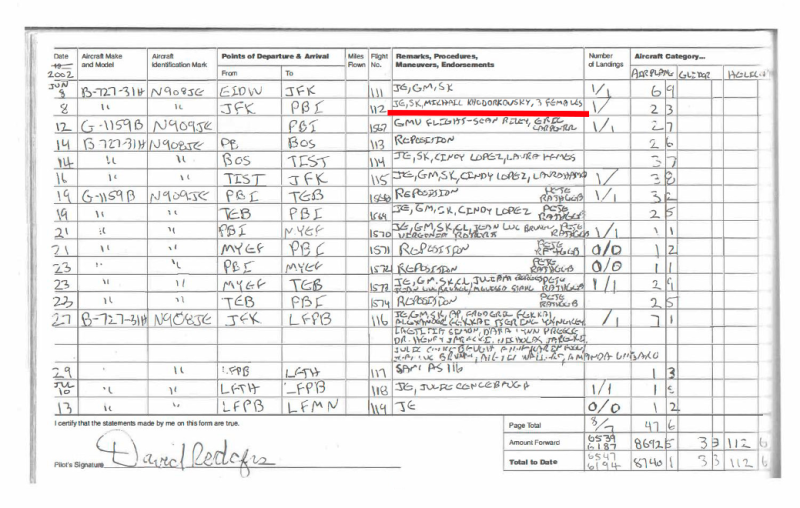 Date Aircraft Make and Model Aircraft Identification Mark Points of Departure & Arrival Miles Flown Flight No. Remarks, Procedures, Maneuvers, Endorsements Number of Landings Aircraft Category...
2002 From To AIRPLANE GLIDER
JUN
8 B-727-31H N908JE EIDW JFK 111 JE, GM, SK 1/1 6 9
8 " " JFK PBI 112 JE, SK, MICHAEL KHODORKOVSKY, 3 FEMALES 1/ 2 3
12 G-1159B N909JE PBI 1567 GMV FLIGHT-SEAN RILEY, ERIC 1/1 2 7
14 B-727-31H N908JE PB BOS 113 REPOSITION 2 6
14 " " BOS TIST 114 JE, SK, CINDY LOPEZ, 3 7
16 " " TIST JFK 115 JE, GM, SK, CINDY LOPEZ, 1/ 3 8
19 G-1159B N909JE PBI TEB 1568 REPOSITION PETE RATHGEB 1/1 3 2
19 " " TEB PBI 1569 JE, GM, SK, CINDY LOPEZ PETE RATHGEB 2 5
21 " " PBI MYEF 1570 JE, GM, SK, CL, JEAN LUC BRUNEL, PETE 1/1 1 1
21 " " MYEF PBI 1571 REPOSITION PETE RATHGEB 0/0 1 2
23 " " PBI MYEF 1572 REPOSITION PETE RATHGEB 0/0 1 1
23 " " MYEF TEB 1573 JE, GM, SK, CL, 1/1 2 9
23 " " TEB PBI 1574 REPOSITION PETE RATHGEB 2 5
27 B-727-31H N908JE JFK LFPB 116 JE, GM, SK, AP, 1/ 7 1
29 " LFPB LFTH 117 SAME AS 116 1 3
JUL
10 " " LFTH LFPB 118 JE, JULIE 1/1 1
13 " " LFPB LFMN 119 JE 0/0 1 2
I certify that the statements made by me on this form are true.
Page Total 8/7 47 6
Amount Forward 6539 6187 8692 5 3 3 112 6
Pilot's Signature David Rodgers
Total to Date 6547 6194 8740 1 3 3 112 6